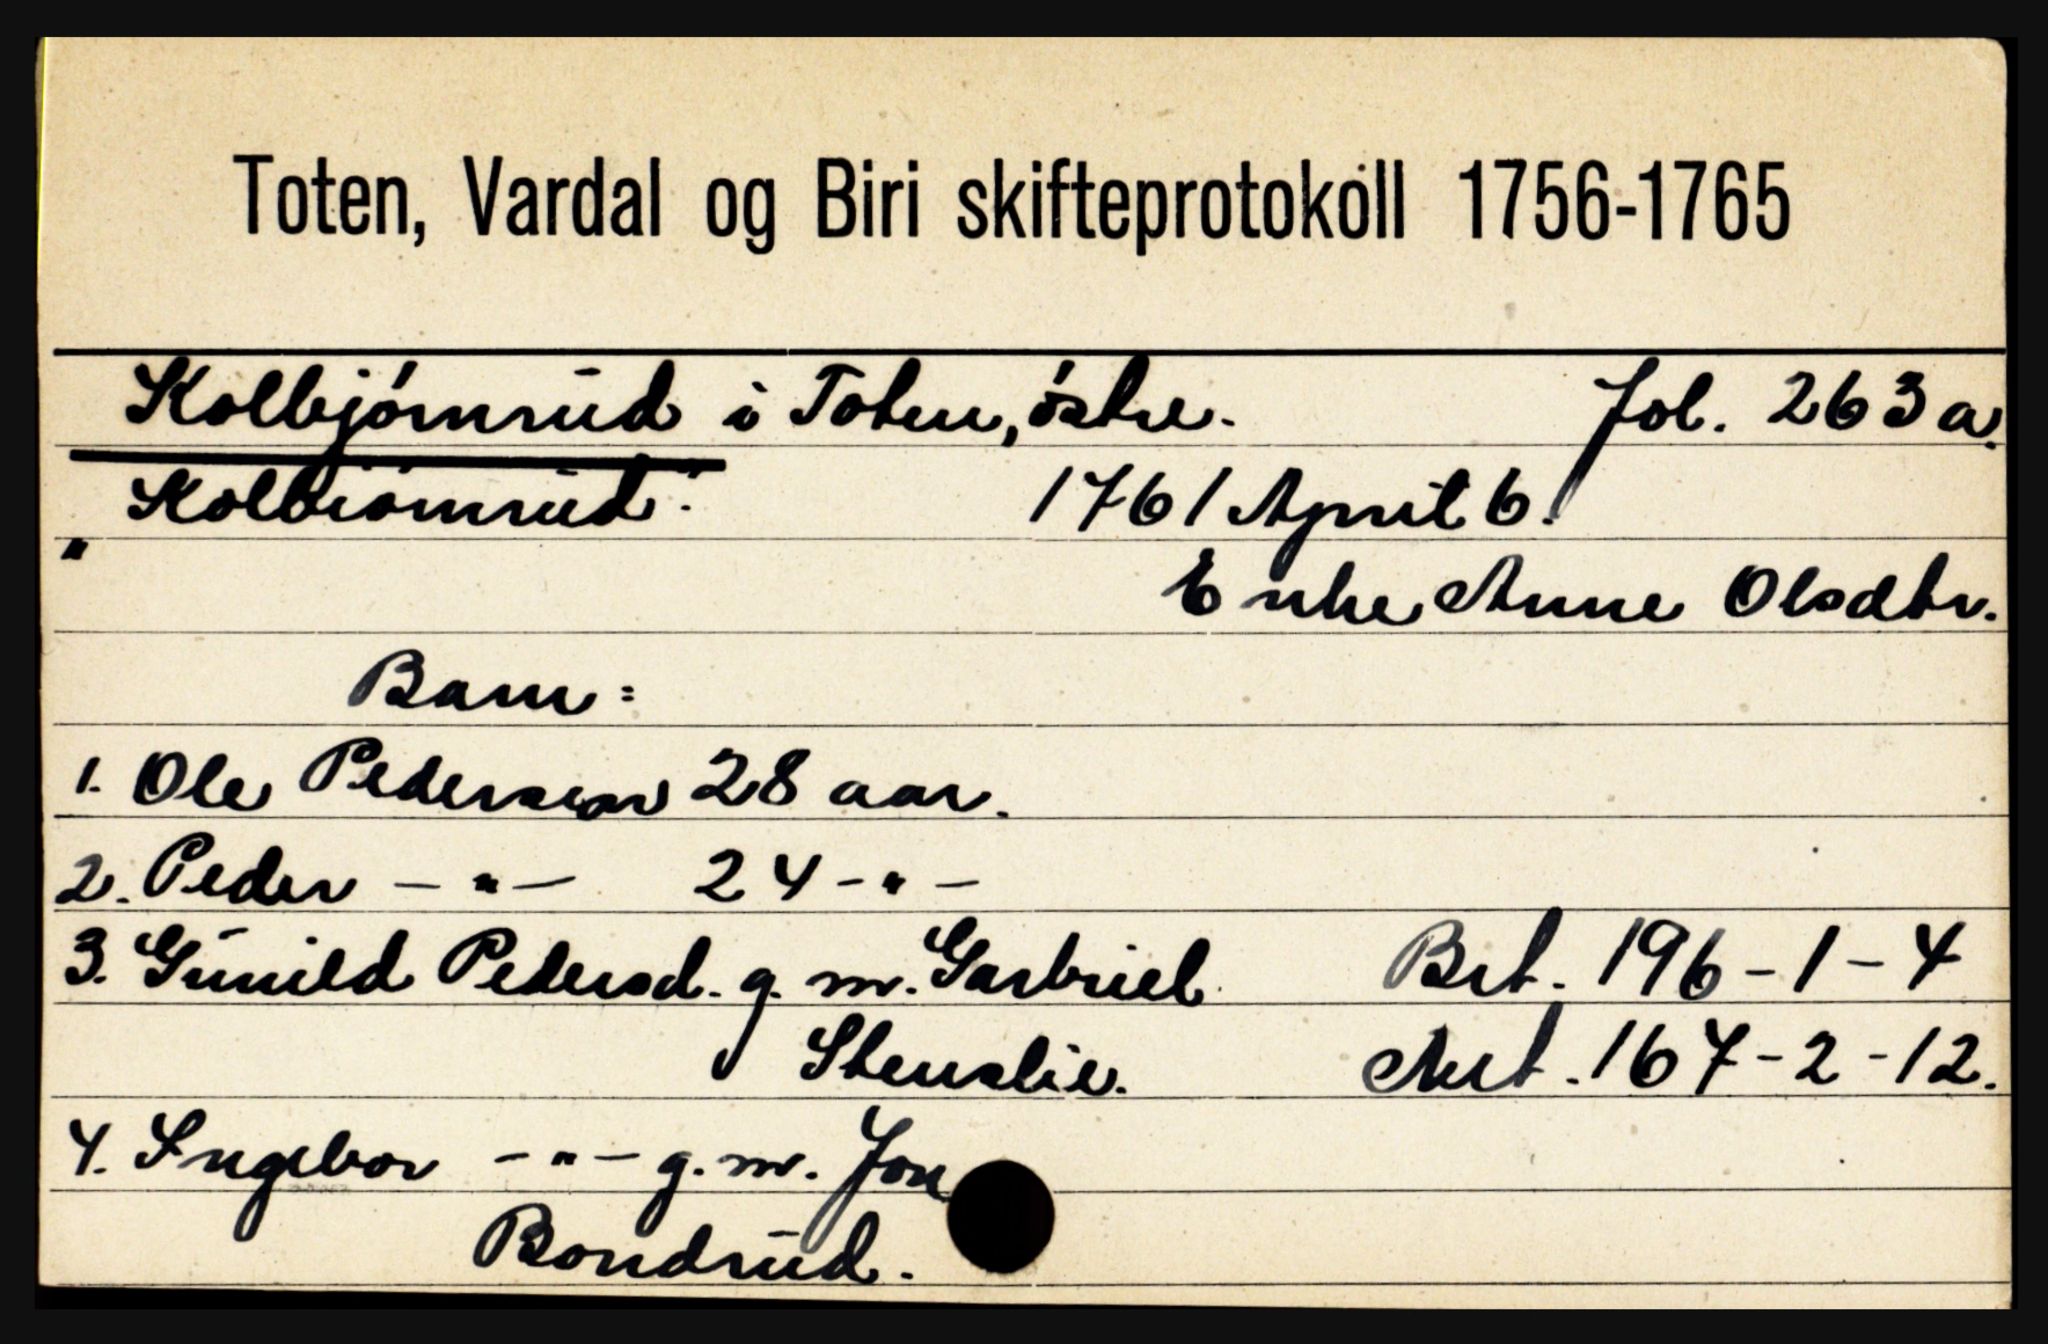 Toten, Vardal og Biri skifteprotokoll 1756-1765
Kolbjörnrud i Toten, östre. Fol. 263a.
"Kolbiörnrud". 1761 April 6.
Enke Anne Olsdtr.
Barn:
1. Ole Pedersen 28 aar.
2. Peder - " - 24 - " -
3. Gunild Pedersd. g. m. Garbriel Brt. 196-1-4
Stenslie. Nert. 167-2-12.
4. Ingebor - " - g. m. Jon
Bondrud.